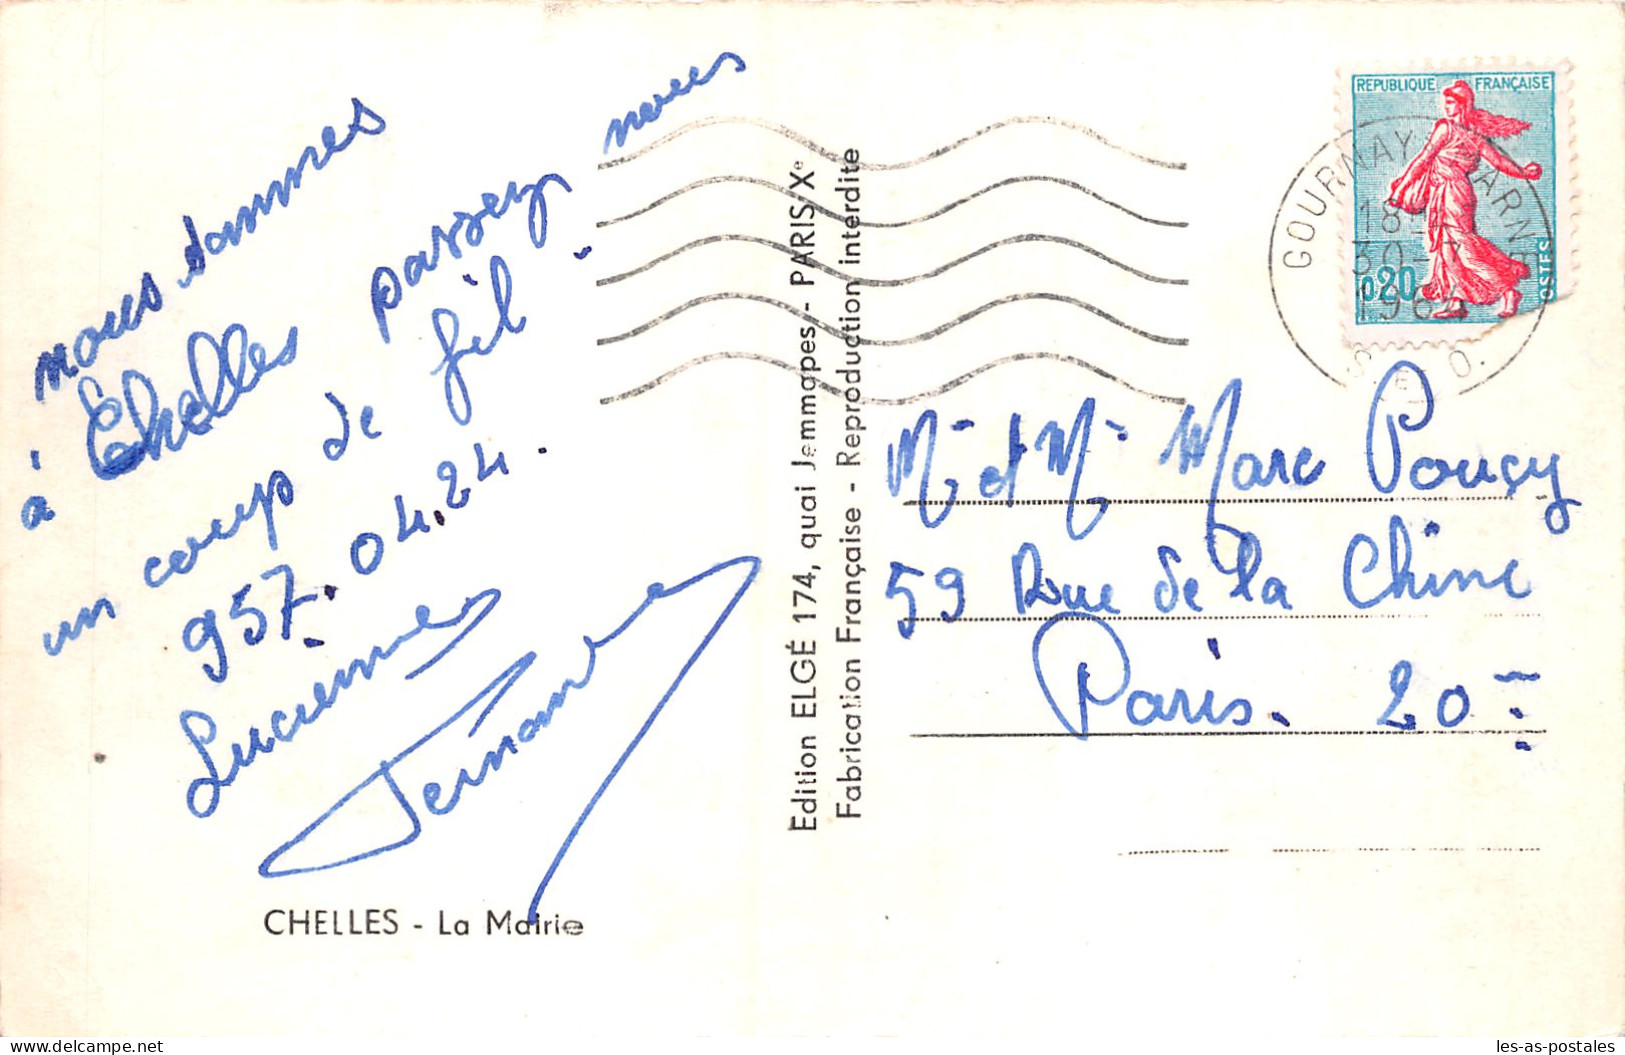 nous sommes
à Chelles passez nous
un coup de fil
957.04.24.
Lucienne
Fernande
CHELLES - La Mairie
Edition ELGÉ 174, quai Jemmapes - PARIS-Xe
Fabrication Française - Reproduction interdite
REPUBLIQUE FRANÇAISE
0,20
POSTES
GOURNAY
18
30-7
1964
S. et O.
Mr et Me Marc Pouçy
59 Rue de la Chine
Paris. 20me
les-as-postales
www.delcampe.net